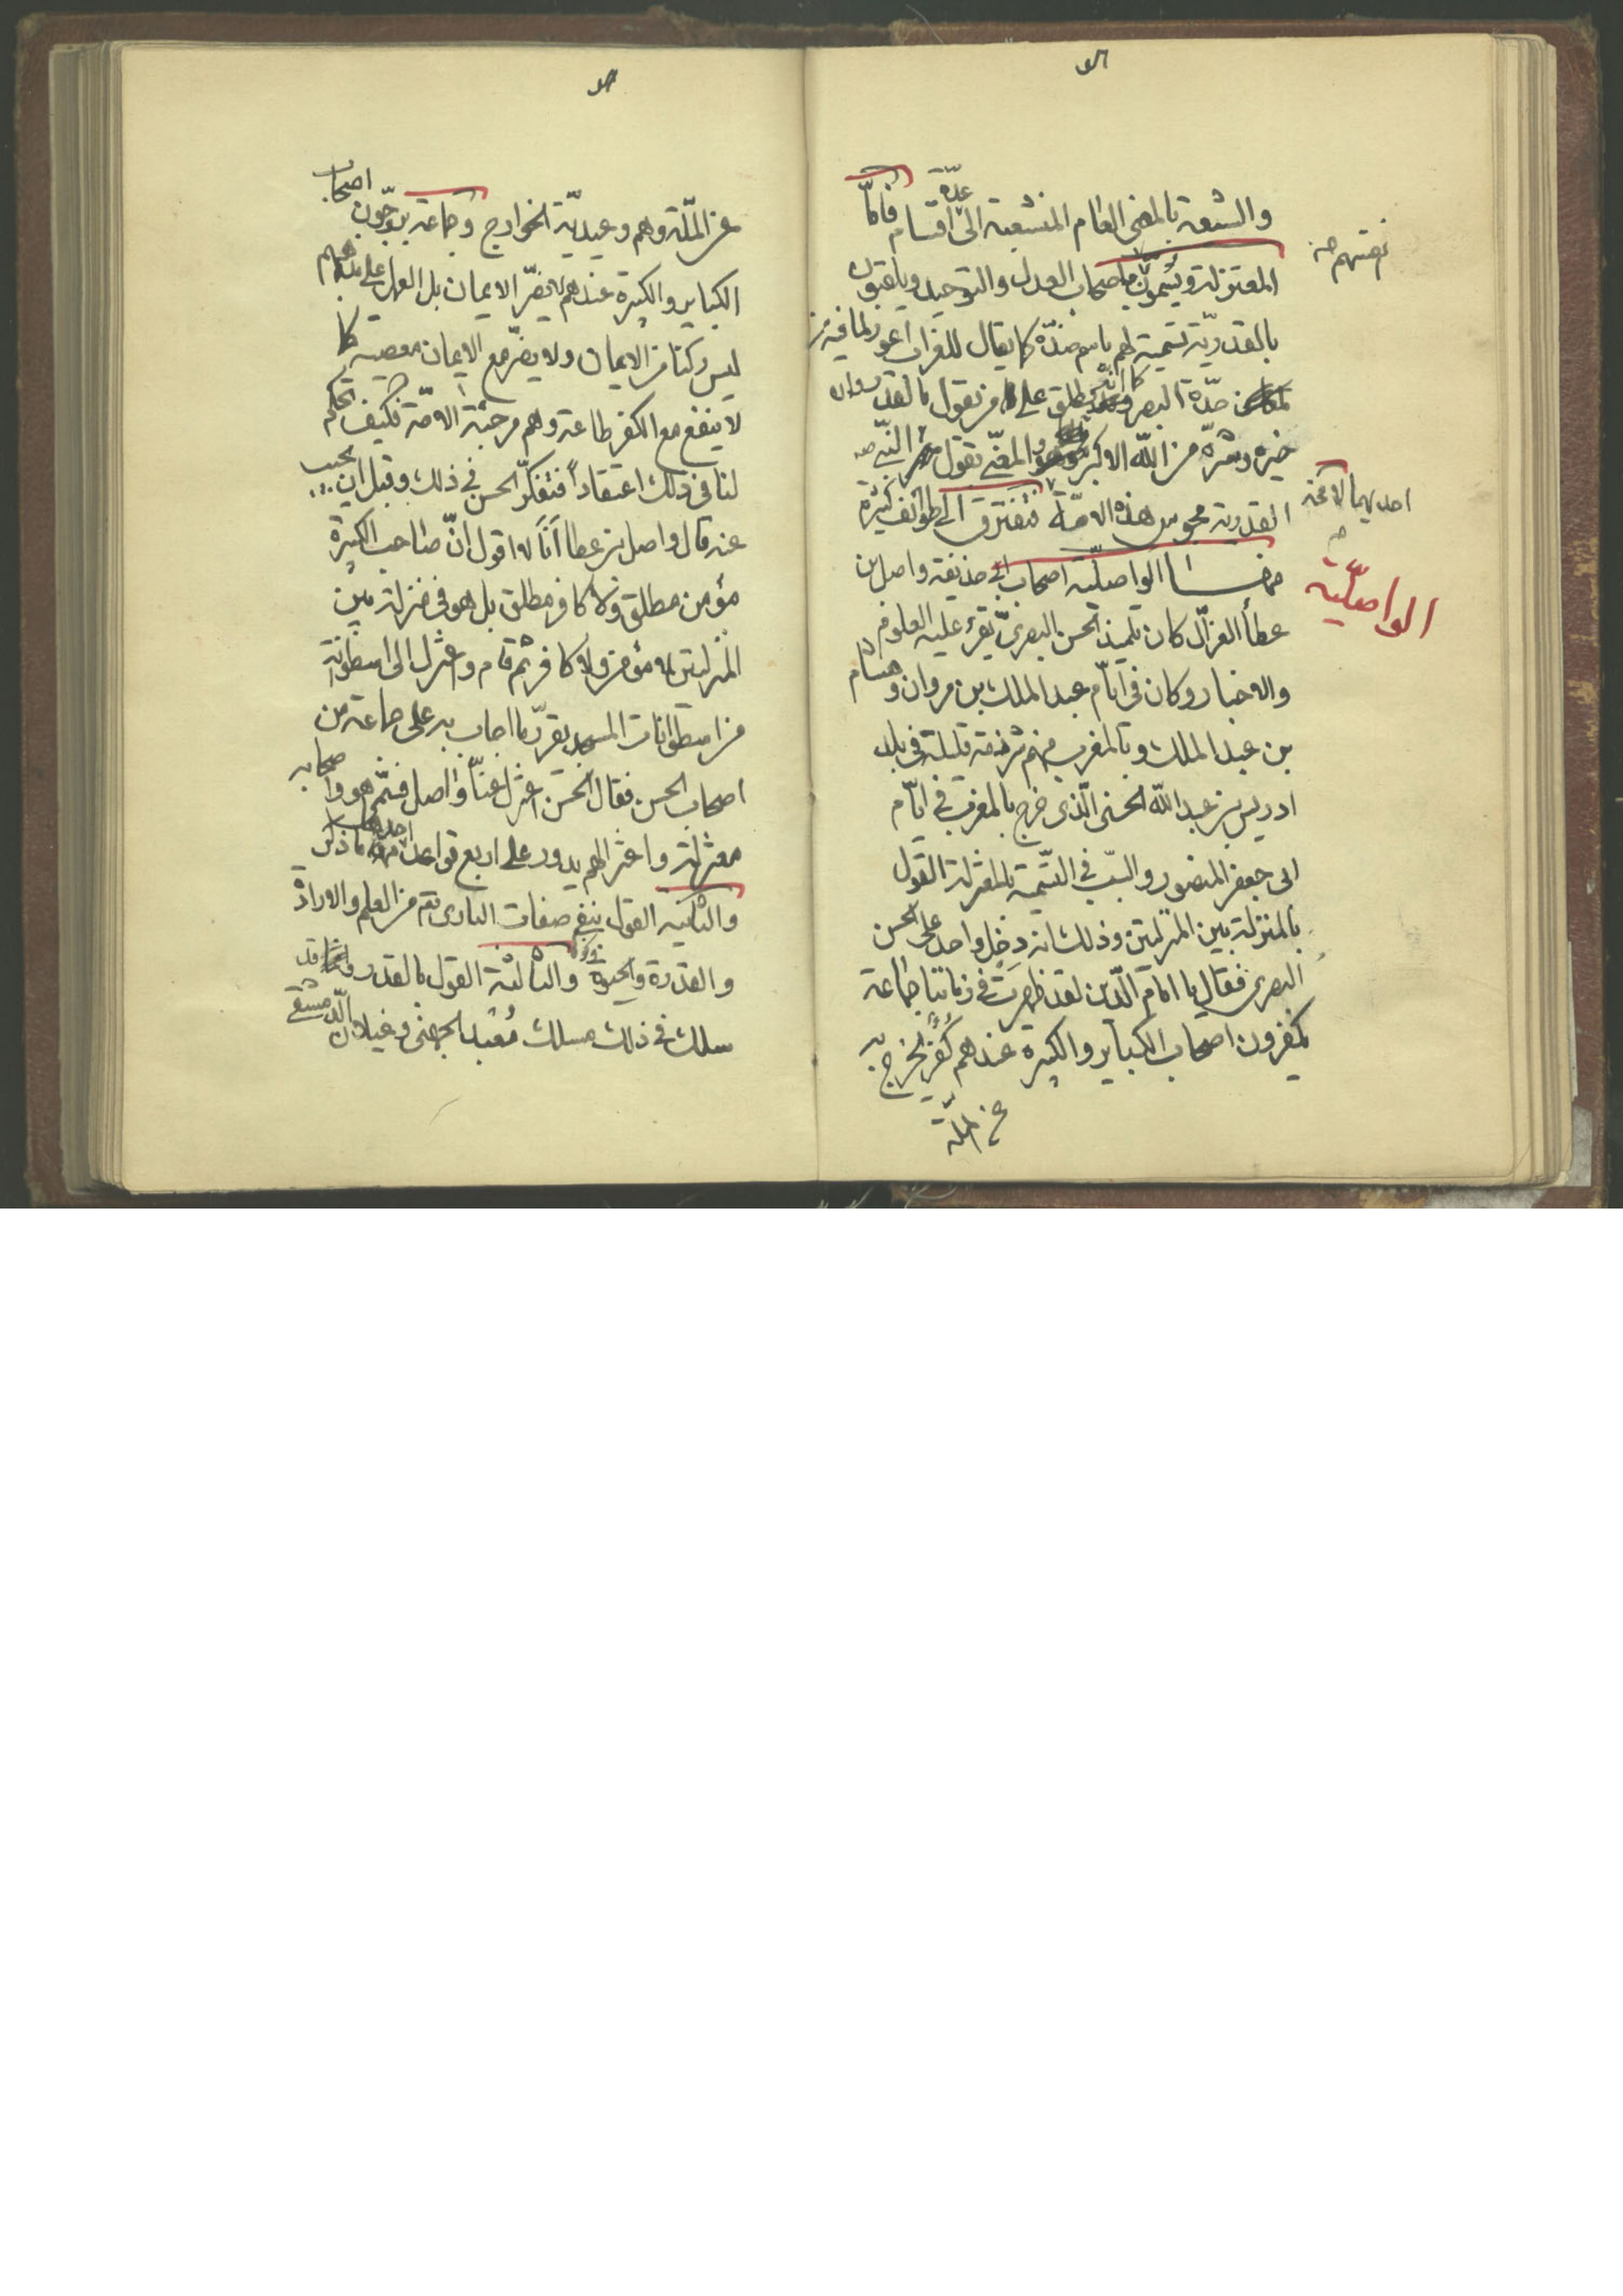 والشيعة بالمعنى العام المنشعبة الى عدّة اقسام فامّا
المعتزلة ويسمون باصحاب العدل والتوحيد ويلقبون
بالقدريّة تسمية لهم باسم ضدّه كما يقال للغراب اعور لما فيه من
حدّة البصر كما انه يطلق على من يقول بالقدر وان
خيره وشره من الله الاكبر والمعنى بقول النبي
القدرية مجوس هذه الامّة فتفترق الى طوائف كثيرة
احديهما
الواصليّة
منها الواصليّة اصحاب ابي حذيفة واصل بن
عطا الغزال كان تلميذ الحسن البصريّ يقرء عليه العلوم
والاخبار وكان في ايّام عبد الملك بن مروان وهشام
بن عبد الملك وبالمغرب منهم شرذمة قليلة في بلد
ادريس بن عبد الله الحسنى الّذى خرج بالمغرب في ايّام
ابى جعفر المنصور والسبب في التسمية بالمعتزلة القول
بالمنزلة بين المنزلتين وذلك انه دخل واحد على الحسن
البصرى فقال يا امام الدّين لقد ظهرت في زماننا جماعة
يكفرون اصحاب الكباير والكبيرة عندهم كفر يخرج به
عن الملّة
عن الملّة وهم وعيديّة الخوارج وجماعة يرجّون اصحاب
الكباير والكبيرة عندهم لا يضرّ الايمان بل العمل على مذهبهم
ليس ركنا من الايمان ولا يضرّ مع الايمان معصية كما
لا ينفع مع الكفر طاعة وهم مرجئة الامّة فكيف تحكم
لنا في ذلك اعتقاداً فتفكّر الحسن في ذلك وقبل ان يجيب
عنه قال واصل بن عطا انا لا اقول انّ صاحب الكبيرة
مؤمن مطلق ولا كافر مطلق بل هو في منزلة بين
المنزلتين لا مؤمن ولا كافر ثم قام واعتزل الى اسطوانة
من اسطوانات المسجد يقرّر ما اجاب به على جماعة من
اصحاب الحسن فقال الحسن اعتزل عنّا واصل فسمّى هو واصحابه
معتزلة واعتزالهم يدور على اربع قواعد احدها ما ذكر
والثانيه القول بنفى صفات البارى تع من العلم والارادة
والقدرة والحيوة والثالثة القول بالقدر وقد
سلك في ذلك مسلك معبد الجهنى وغيلان الدّمشقى